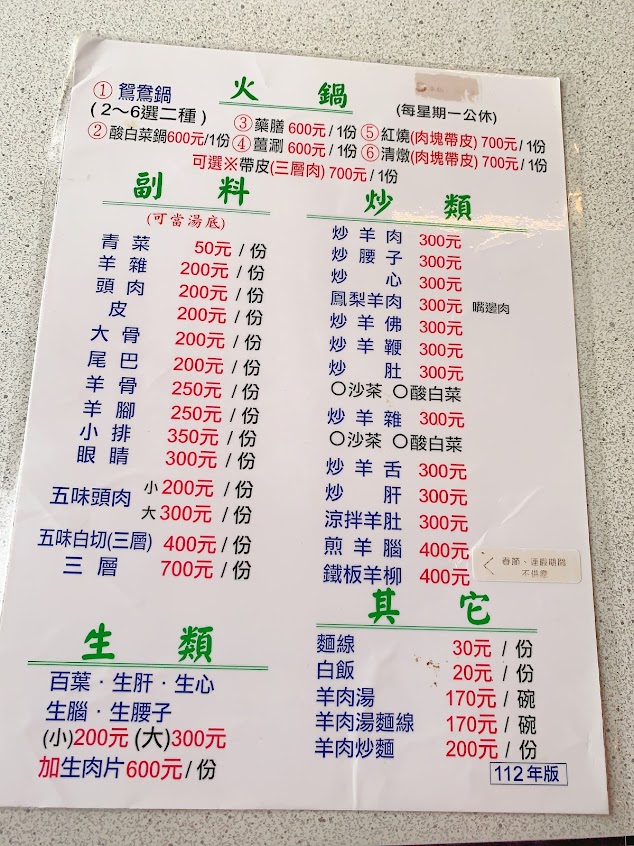 火鍋
(每星期一公休)
① 鴛鴦鍋
(2～6選二種)
② 酸白菜鍋600元/1份
③ 藥膳 600元 / 1份
④ 薑涮 600元 / 1份
⑤ 紅燒(肉塊帶皮) 700元 / 1份
⑥ 清燉(肉塊帶皮) 700元 / 1份
可選※帶皮(三層肉) 700元 / 1份
副料
(可當湯底)
青菜 50元 / 份
羊雜 200元 / 份
頭肉 200元 / 份
皮 200元 / 份
大骨 200元 / 份
尾巴 200元 / 份
羊骨 250元 / 份
羊腳 250元 / 份
小排 350元 / 份
眼睛 300元 / 份
五味頭肉 小200元 / 份
大300元 / 份
五味白切(三層) 400元 / 份
三層 700元 / 份
生類
百葉．生肝．生心
生腦．生腰子
(小)200元 (大)300元
加生肉片600元 / 份
炒類
炒羊肉 300元
炒腰子 300元
炒心 300元
鳳梨羊肉 300元 嘴邊肉
炒羊佛 300元
炒羊鞭 300元
炒肚 300元
○沙茶 ○酸白菜
炒羊雜 300元
○沙茶 ○酸白菜
炒羊舌 300元
炒肝 300元
涼拌羊肚 300元
煎羊腦 400元
鐵板羊柳 400元
春節、連假期間
不供應
其它
麵線 30元 / 份
白飯 20元 / 份
羊肉湯 170元 / 碗
羊肉湯麵線 170元 / 碗
羊肉炒麵 200元 / 份
112年版